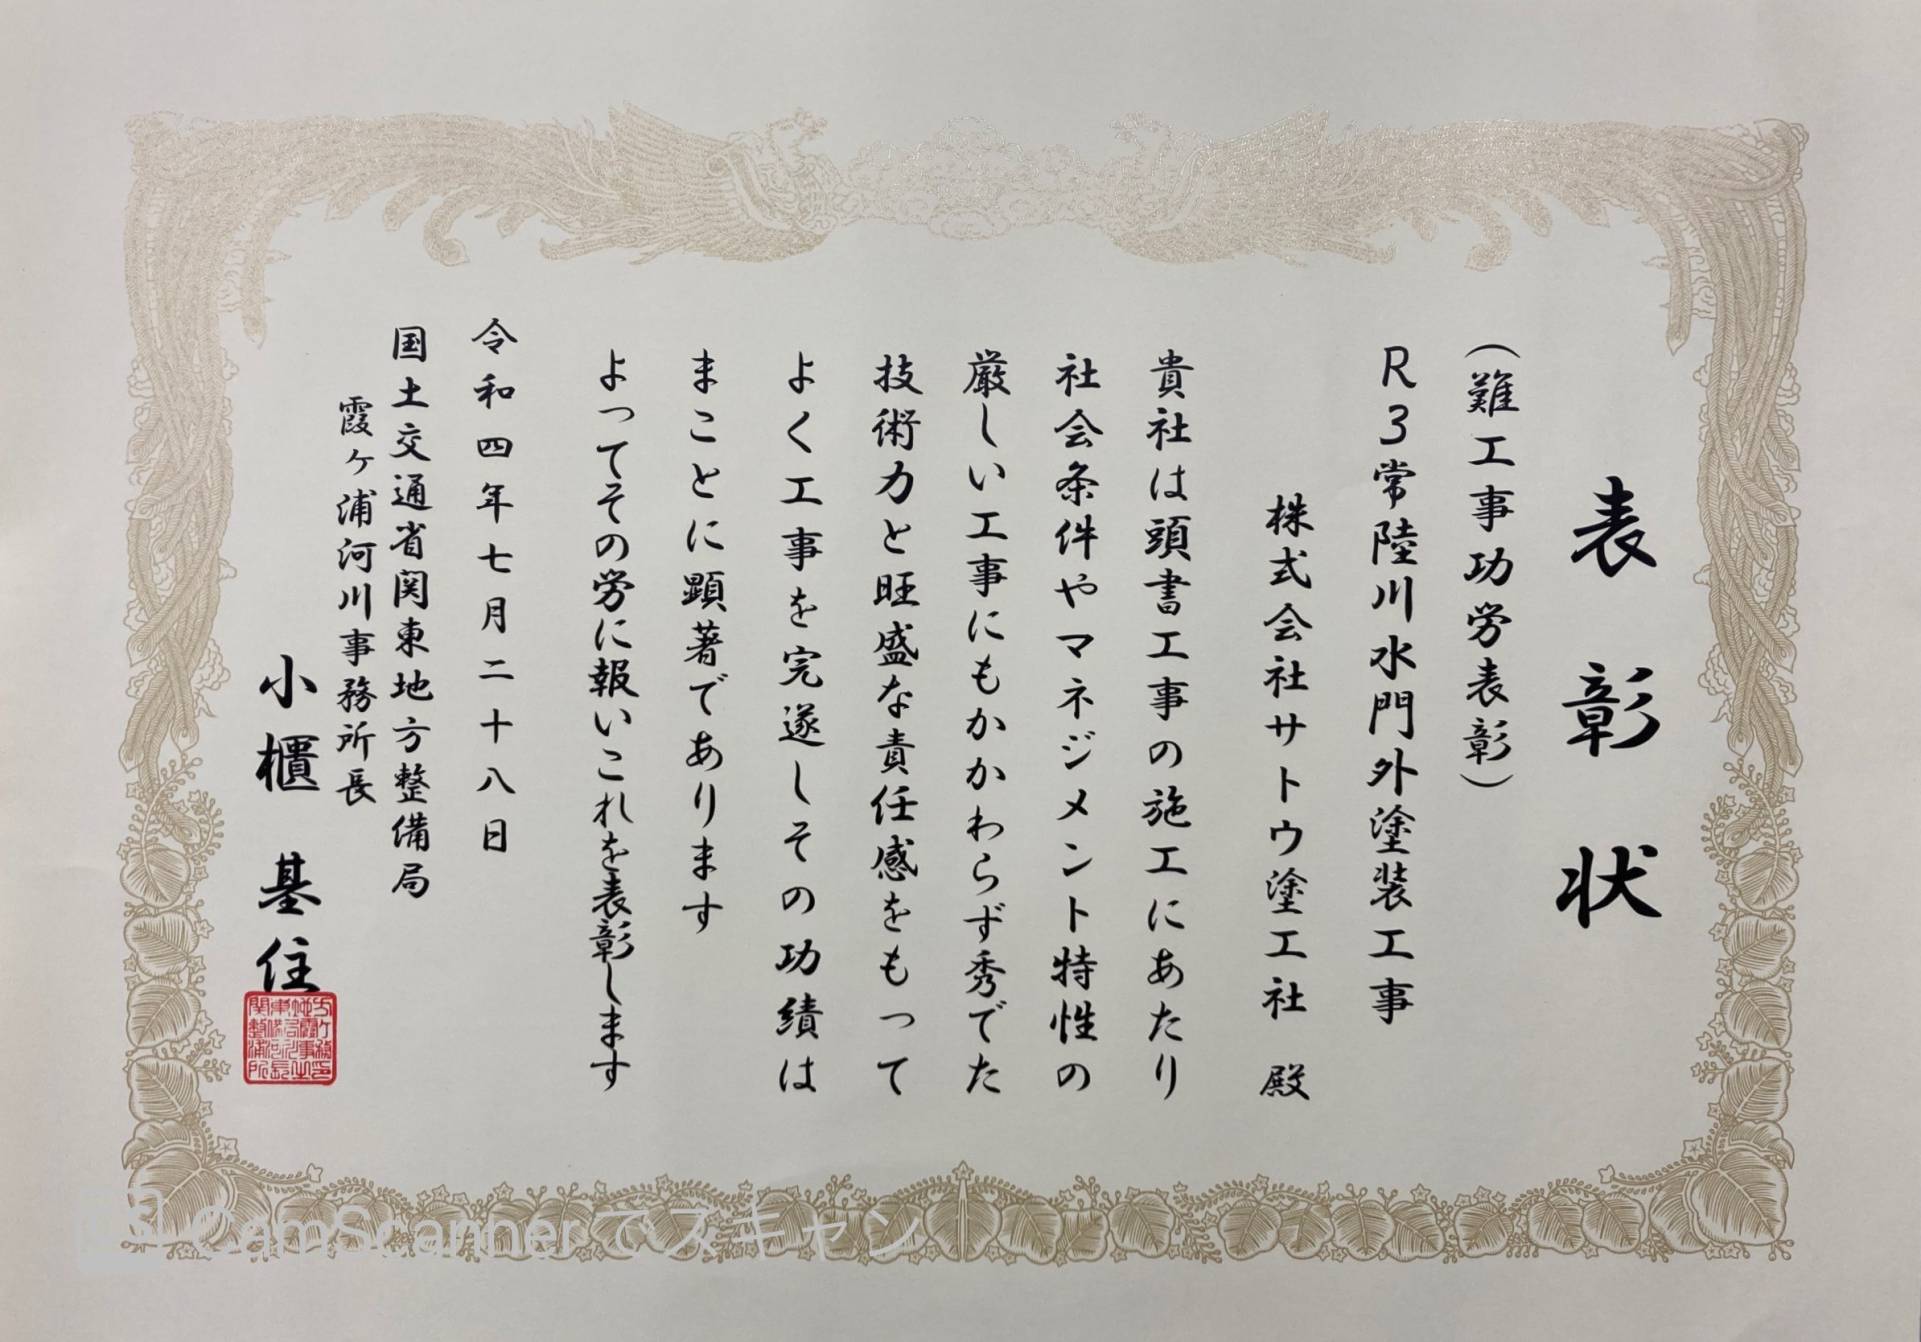 表彰状
(難工事功労表彰)
R3常陸川水門外塗装工事
株式会社サトウ塗工社 殿
貴社は頭書工事の施工にあたり
社会条件やマネジメント特性の
厳しい工事にもかかわらず秀でた
技術力と旺盛な責任感をもって
よく工事を完遂しその功績は
まことに顕著であります
よってその労に報いこれを表彰します
令和四年七月二十八日
国土交通省関東地方整備局
霞ヶ浦河川事務所長
小櫃 基住
CS CamScannerでスキャン